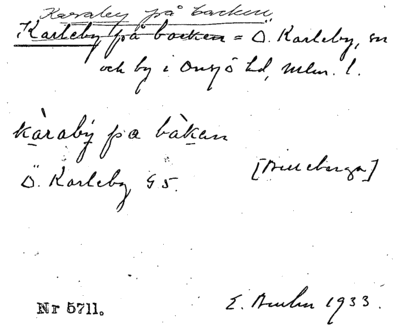 Karaby på backen
Karleby på backen = Ö. Karleby, sn
och by i Onsjö hd, Mlm. l.
kàrabẏ pa bàkan
Ö. Karleby G 5. [Billeberga]
Nr 5711. E. 1933.